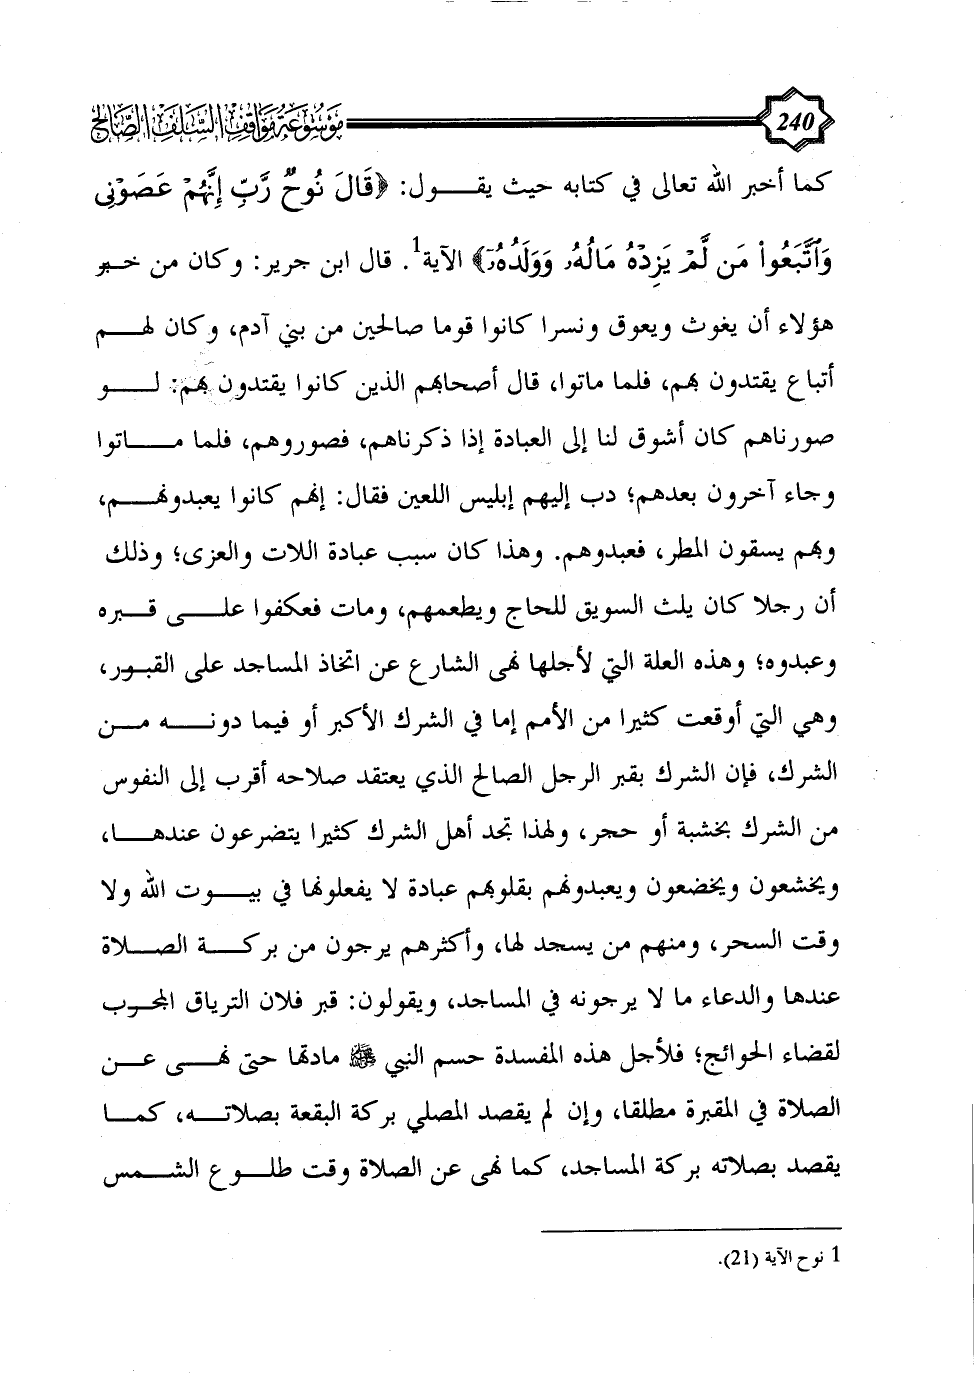 240
موسوعة مواقف السلف الصالح
كما أخبر الله تعالى في كتابه حيث يقول: ﴿قَالَ نُوحٌ رَّبِّ إِنَّهُمْ عَصَوْنِي
وَٱتَّبَعُوا۟ مَن لَّمْ يَزِدْهُ مَالُهُۥ وَوَلَدُهُۥٓ﴾ الآية1. قال ابن جرير: وكان من خبر
هؤلاء أن يغوث ويعوق ونسرا كانوا قوما صالحين من بني آدم، وكان لهم
أتباع يقتدون بهم، فلما ماتوا، قال أصحابهم الذين كانوا يقتدون بهم: لو
صورناهم كان أشوق لنا إلى العبادة إذا ذكرناهم، فصوروهم، فلما ماتوا
وجاء آخرون بعدهم؛ دب إليهم إبليس اللعين فقال: إنهم كانوا يعبدونهم،
وبهم يسقون المطر، فعبدوهم. وهذا كان سبب عبادة اللات والعزى؛ وذلك
أن رجلا كان يلث السويق للحاج ويطعمهم، ومات فعكفوا على قبره
وعبدوه؛ وهذه العلة التي لأجلها نهى الشارع عن اتخاذ المساجد على القبور،
وهي التي أوقعت كثيرا من الأمم إما في الشرك الأكبر أو فيما دونه من
الشرك، فإن الشرك بقبر الرجل الصالح الذي يعتقد صلاحه أقرب إلى النفوس
من الشرك بخشبة أو حجر، ولهذا تجد أهل الشرك كثيرا يتضرعون عندها،
ويخشعون ويخضعون ويعبدونهم بقلوبهم عبادة لا يفعلونها في بيوت الله ولا
وقت السحر، ومنهم من يسجد لها، وأكثرهم يرجون من بركة الصلاة
عندها والدعاء ما لا يرجونه في المساجد، ويقولون: قبر فلان الترياق المجرب
لقضاء الحوائج؛ فلأجل هذه المفسدة حسم النبي ﷺ مادتها حتى نهى عن
الصلاة في المقبرة مطلقا، وإن لم يقصد المصلي بركة البقعة بصلاته، كما
يقصد بصلاته بركة المساجد، كما نهى عن الصلاة وقت طلوع الشمس
1 نوح الآية (21).